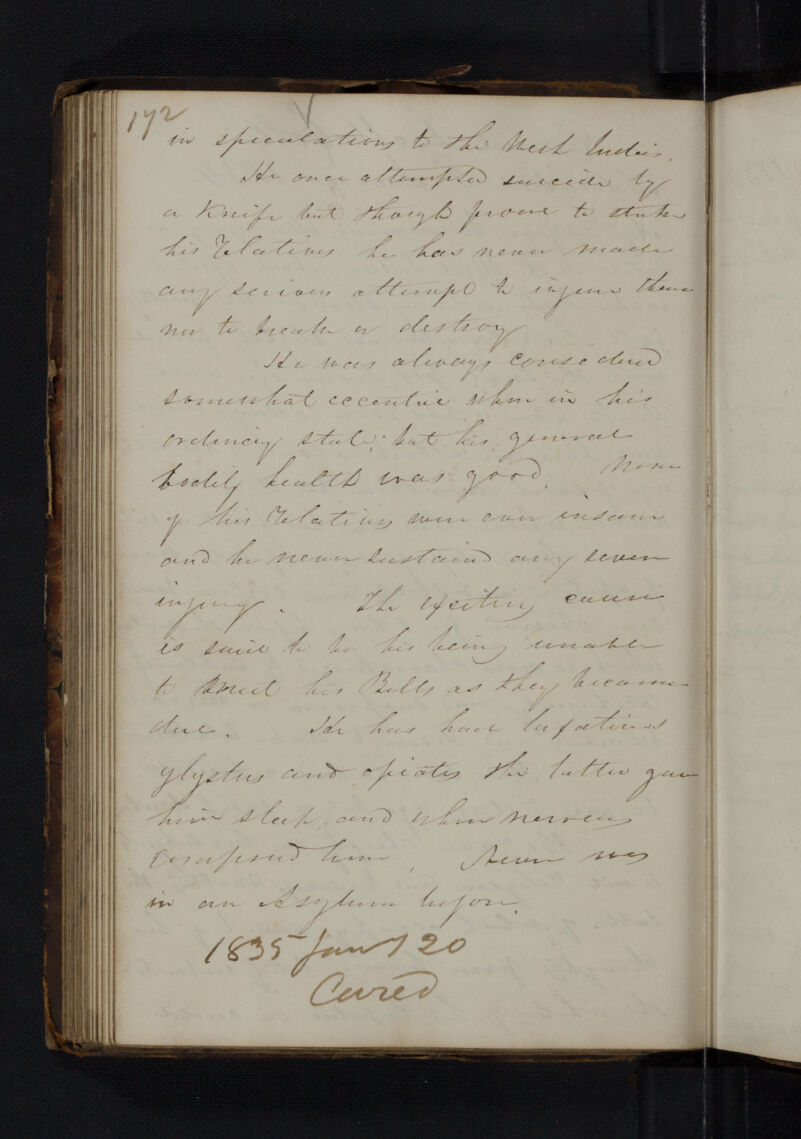 172
in speculations to the West Indies.
He once attempted suicide by
a Knife but though prone to strike
his relatives he has never made
any serious attempt to injure them
nor to break or destroy
He was always considered
somewhat eccentric when in his
ordinary state; but his general
bodily health was good. None
of his relatives were ever insane
and he never sustained any severe
injury. The exciting cause
is said to be his being unable
to meet his Bills as they became
due. He has had laxatives
glysters and opiates the latter gave
him sleep, and when nervous
composed him. Never was
in an Asylum before.
1835 Jany 20
Cured